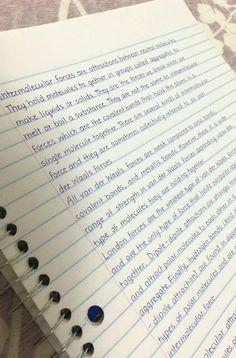 Intermolecular forces are attractions between neutral molecules.
They hold molecules together in groups called aggregates to
make liquids or solids. They are the forces we break when we
melt or boil a substance. They are not the same as intramolecular
forces which are the covalent bonds that hold the atoms in a
single molecule together. There are several kinds of intermolecular
force and they are sometimes collectively referred to as van
der Waals forces.
All van der Waals forces are weak compared to ionic bonds,
covalent bonds, and metallic bonds. However, there is a wide
range of strength in van der Waals forces depending upon the
type of molecules they are holding together.
London forces are the weakest type of van der Waals force
and are the only type of force that holds nonpolar
together. Dipole-dipole attractions are stronger
and attract polar molecules to each other in
aggregate. Finally, hydrogen bonds (kind of
dipole attraction) are found in
types of polar molecules and
intermolecular force.